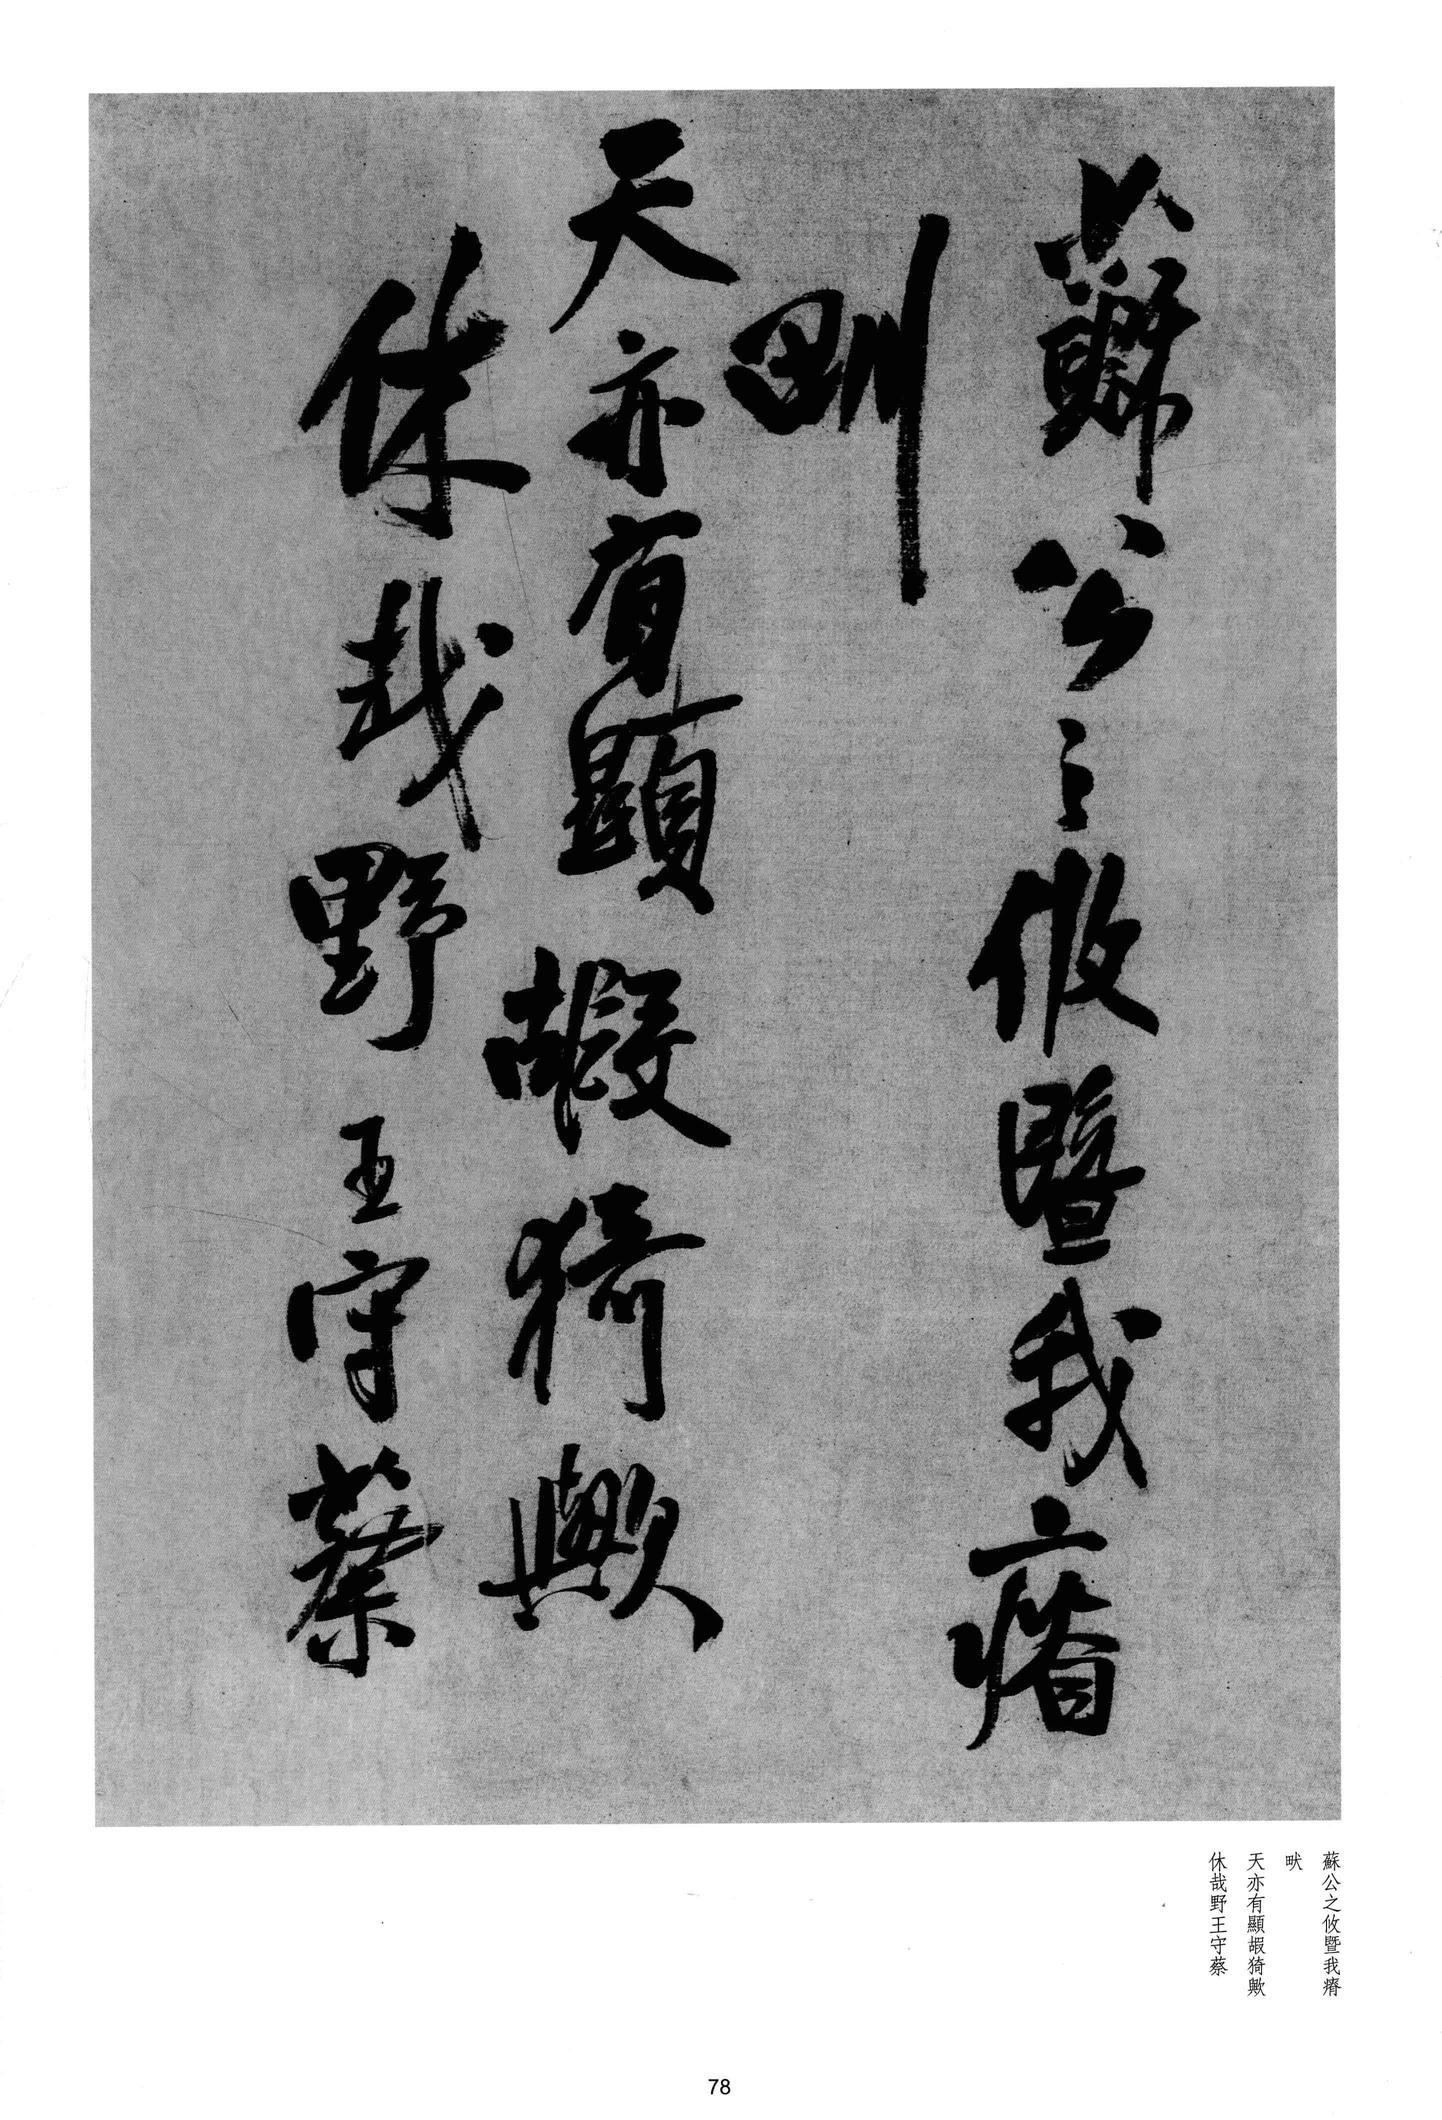 蘇公之攸暨我瘠
甽
天亦有顯嘏猗歟
休哉野王守蔡
蘇公之攸暨我瘠
畎
天亦有顯嘏猗歟
休哉野王守蔡
78